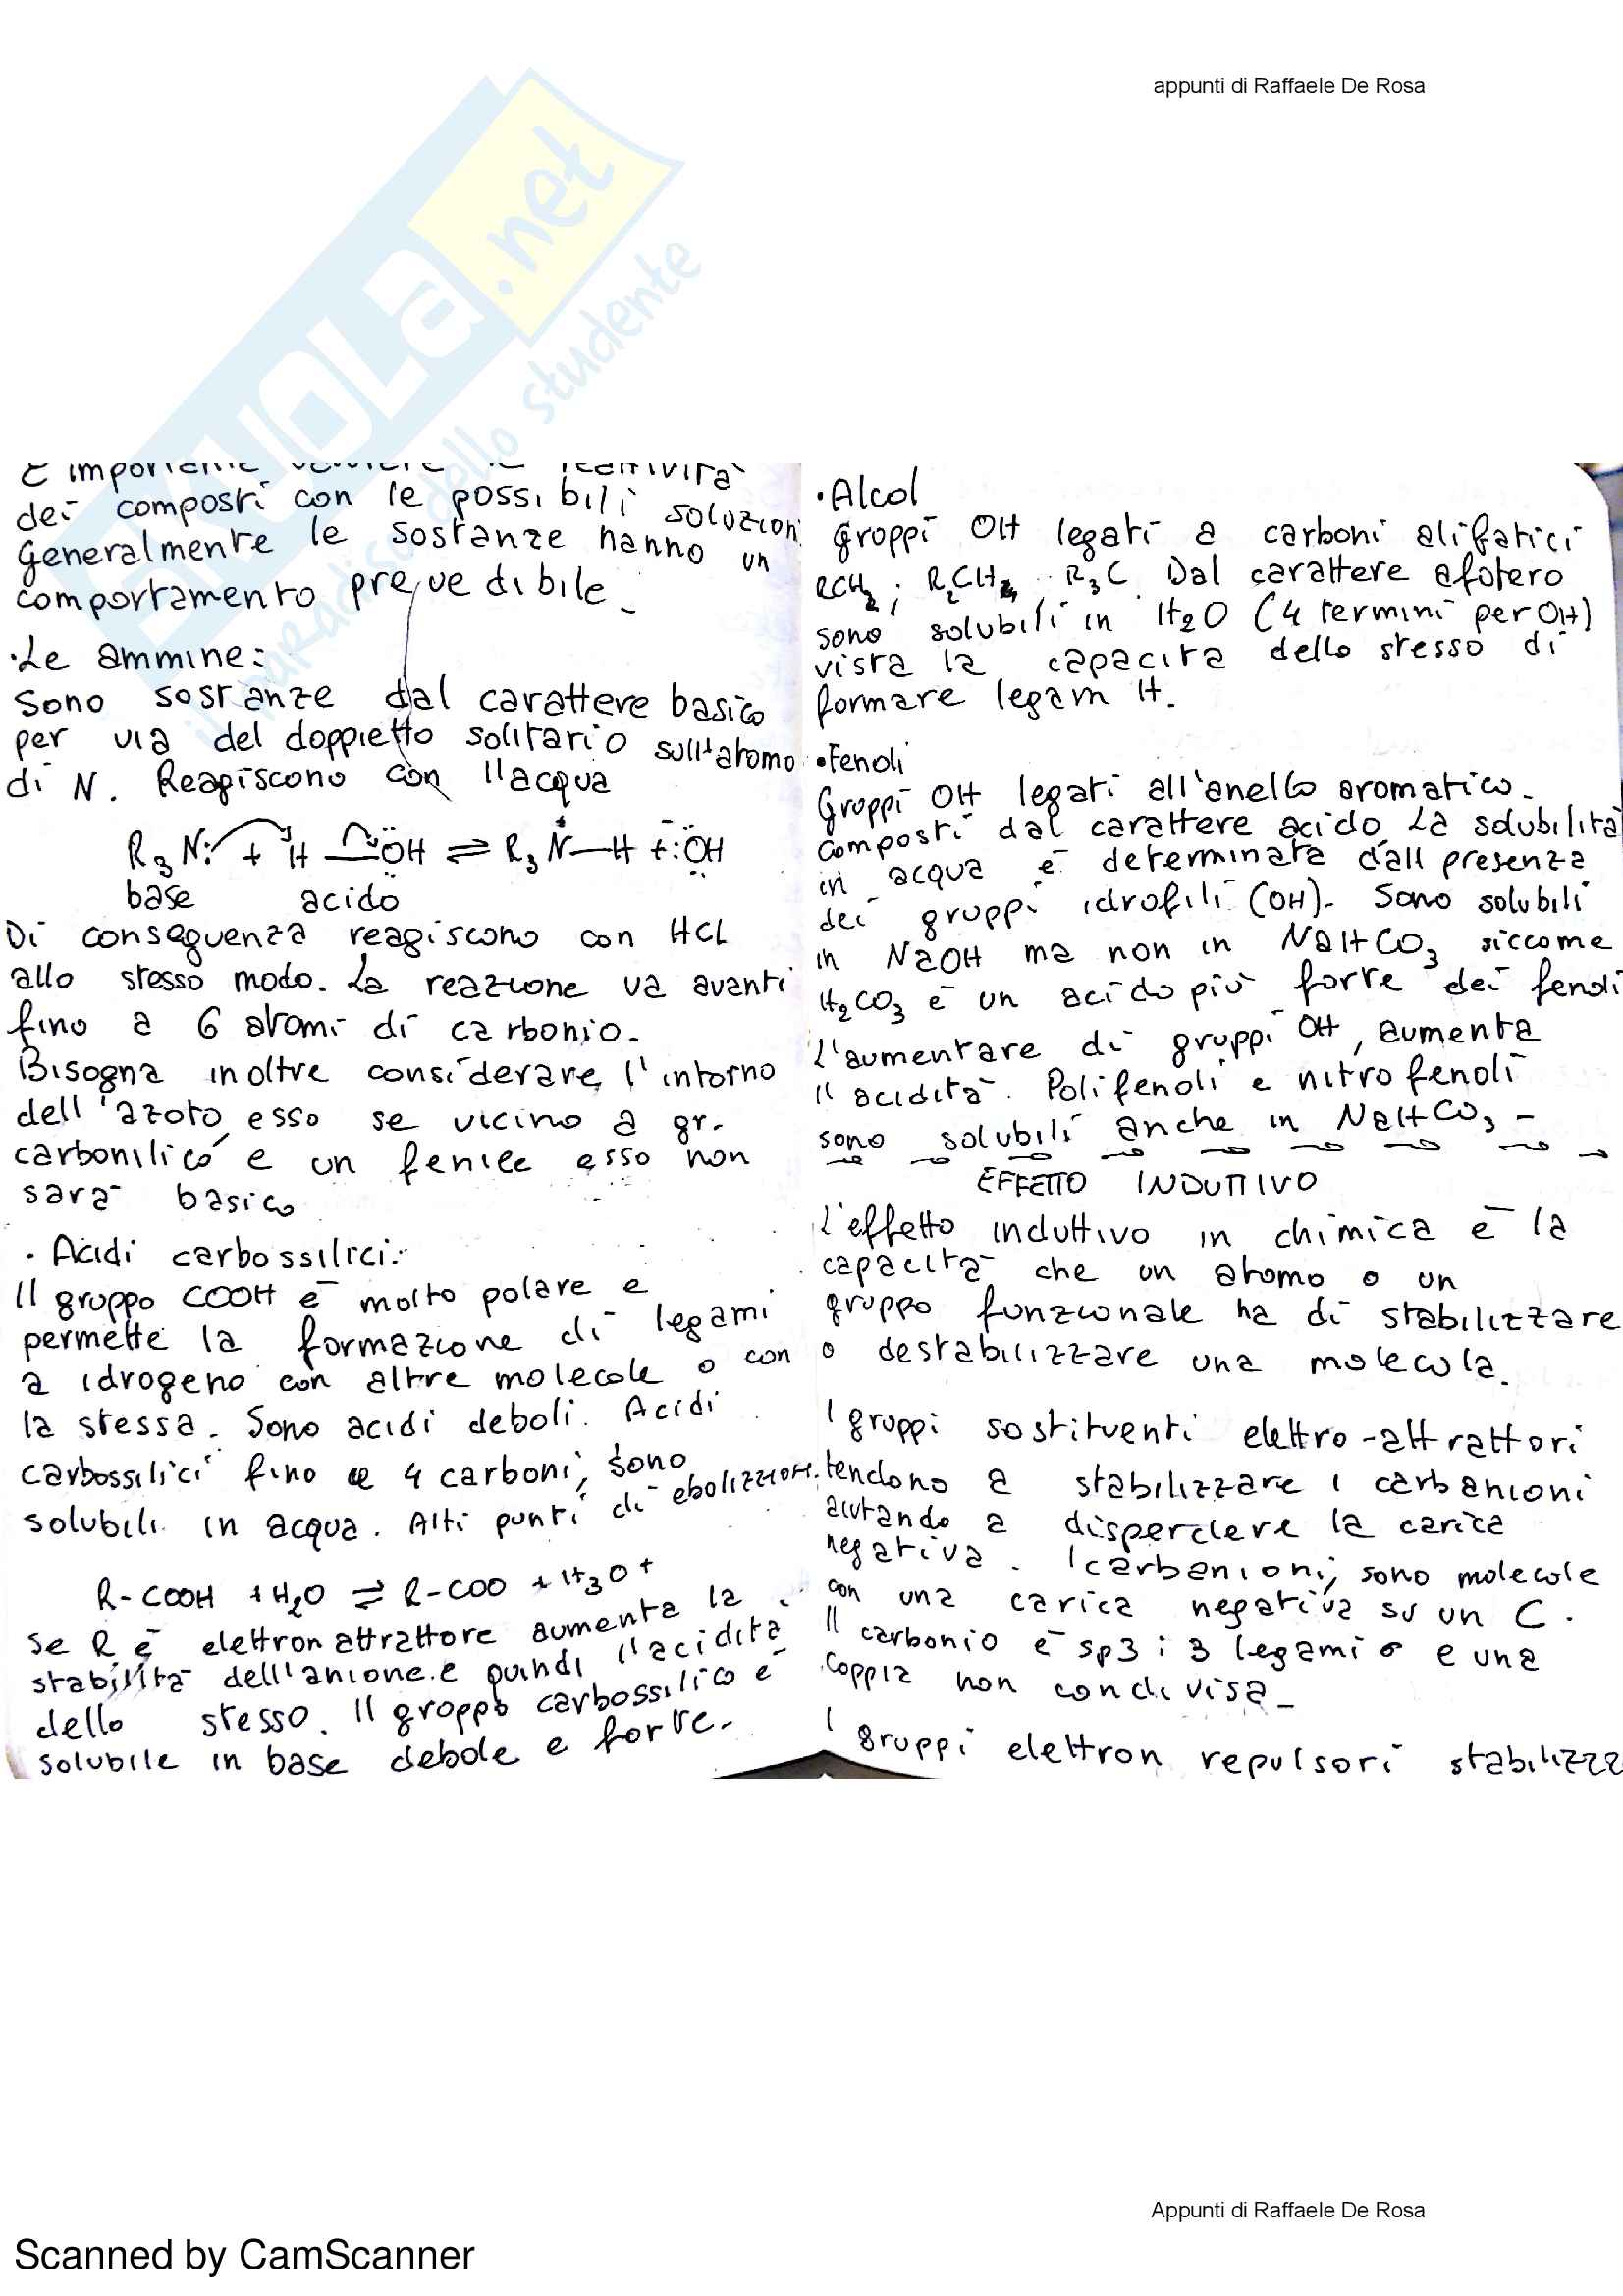 appunti di Raffaele De Rosa
SKUOLA.net
il paradiso dello studente
È importante vedere la reattività
dei composti con le possibili soluzioni
Generalmente le sostanze hanno un
comportamento prevedibile.
·Le ammine:
Sono sostanze dal carattere basico
per via del doppietto solitario sull'atomo
di N. Reagiscono con l'acqua
R₃N: + H—ÖH ⇌ R₃N⁺—H + :ÖH⁻
base acido
Di conseguenza reagiscono con HCl
allo stesso modo. La reazione va avanti
fino a 6 atomi di carbonio.
Bisogna inoltre considerare l'intorno
dell'azoto, esso se vicino a gr.
carbonilico e un fenile esso non
sarà basico
· Acidi carbossilici:
Il gruppo COOH è molto polare e
permette la formazione di legami
a idrogeno con altre molecole o con
la stessa. Sono acidi deboli. Acidi
carbossilici fino a 4 carboni, sono
solubili in acqua. Alti punti di ebolizzion.
R-COOH + H₂O ⇌ R-COO + H₃O⁺
se R è elettronattrattore aumenta la
stabilità dell'anione e quindi l'acidità
dello stesso. Il gruppo carbossilico è
solubile in base debole e forte.
·Alcol
Gruppi OH legati a carboni alifatici
RCH₂; R₂CH, R₃C. Dal carattere afotero
sono solubili in H₂O (4 termini per OH)
vista la capacità dello stesso di
formare legam H.
·Fenoli
Gruppi OH legati all'anello aromatico.
Composti dal carattere acido. La solubilità
in acqua è determinata dall presenza
dei gruppi idrofili (OH). Sono solubili
in NaOH ma non in NaHCO₃ siccome
H₂CO₃ è un acido più forte dei fenoli
L'aumentare di gruppi OH, aumenta
l'acidità. Polifenoli e nitrofenoli
sono solubili anche in NaHCO₃ -
EFFETTO INDUTTIVO
L'effetto induttivo in chimica è la
capacità che un atomo o un
gruppo funzionale ha di stabilizzare
o destabilizzare una molecola.
I gruppi sostituenti elettro-attrattori
tendono a stabilizzare i carbanioni
aiutando a disperdere la carica
negativa. I carbanioni, sono molecole
con una carica negativa su un C.
Il carbonio è sp3 : 3 legami σ e una
coppia non condivisa-
I gruppi elettron repulsori stabilizza
Appunti di Raffaele De Rosa
Scanned by CamScanner